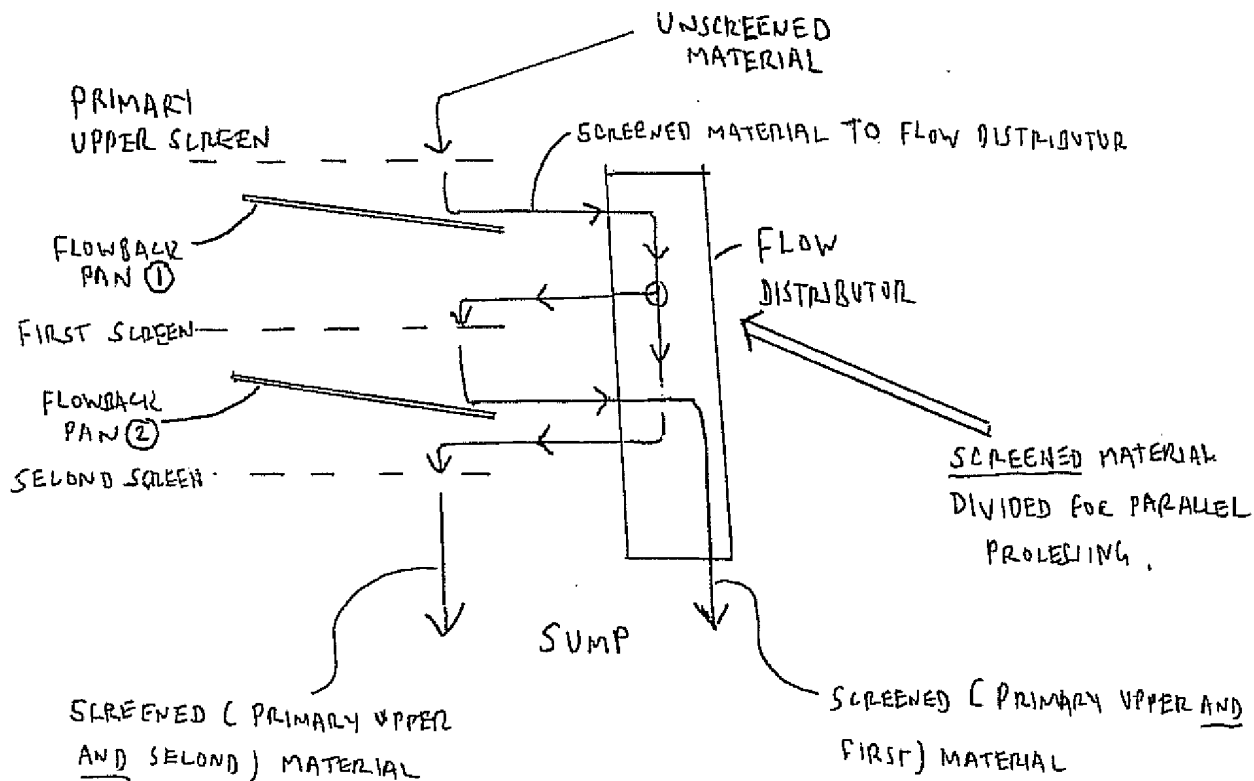 UNSCREENED
MATERIAL
PRIMARY
UPPER SCREEN
SCREENED MATERIAL TO FLOW DISTRIBUTOR
FLOWBACK
PAN ①
FLOW
DISTRIBUTOR
FIRST SCREEN
FLOWBACK
PAN ②
SECOND SCREEN
SCREENED MATERIAL
DIVIDED FOR PARALLEL
PROCESSING.
SUMP
SCREENED ( PRIMARY UPPER
AND SECOND ) MATERIAL
SCREENED ( PRIMARY UPPER AND
FIRST) MATERIAL